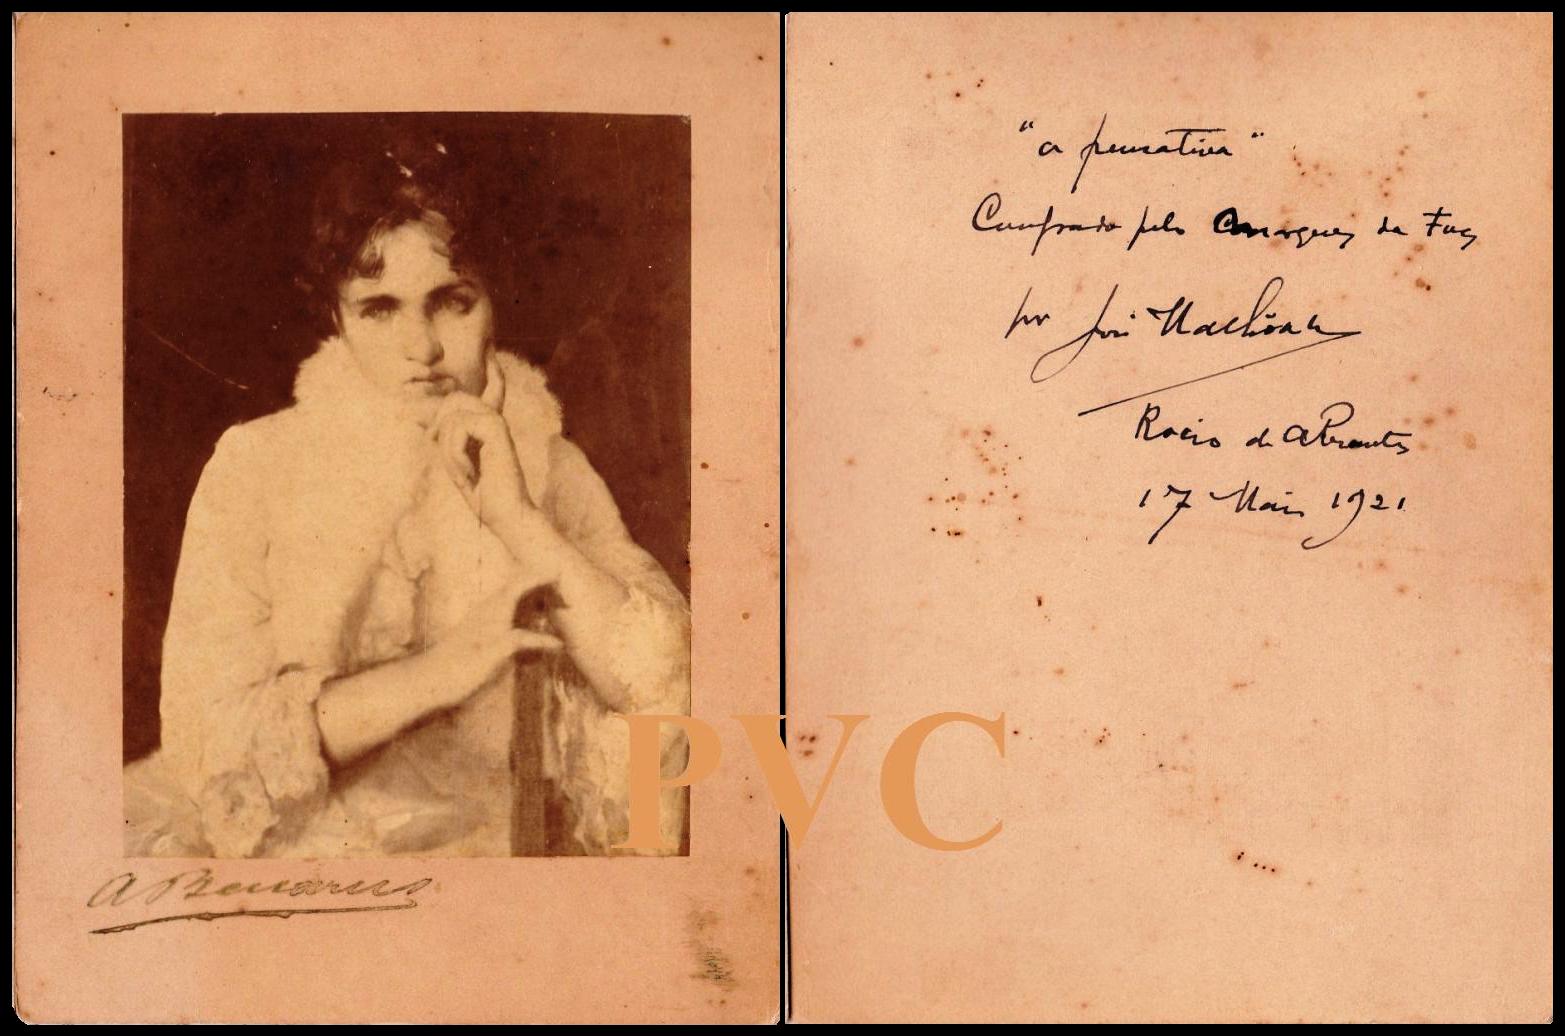 A Benarus
PVC
"a pensativa"
Comprado pelo Marques da Foz
por José Malhôa
Rocio de Abrantes
17 Maio 1921